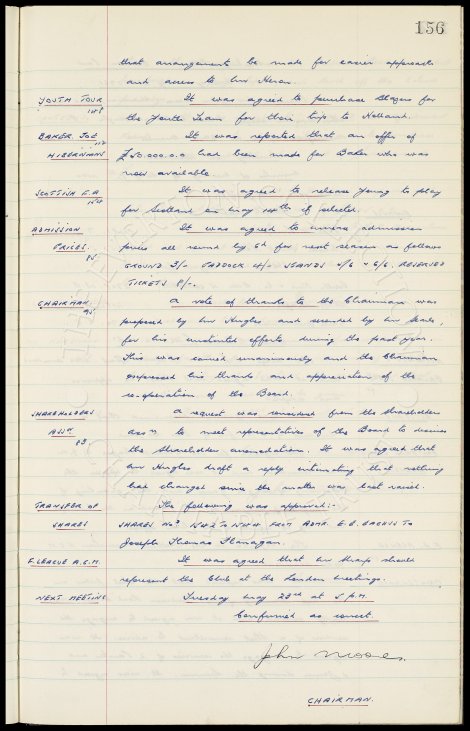 156
that arrangements be made for easier approach
and access to Mr Heron.
YOUTH TOUR It was agreed to purchase Blazers for
the Youth Team for their trip to Holland.
BAKER JOE It was reported that an offer of
HIBERNIANS £50.000.0.0 had been made for Baker who was
now available
SCOTTISH F.A It was agreed to release Young to play
for Scotland on May if selected.
ADMISSION It was agreed to increase admission
PRICES. price all round by 6d for next season as follows
85 GROUND 3/- PADDOCK 4/- STANDS & 6/6. RESERVED
TICKETS 8/-.
CHAIRMAN A vote of thanks to the Chairman was
95 proposed by Mr Hughes and seconded by Mr Searle,
for his unstinted efforts during the past year.
This was carried unanimously and the Chairman
expressed his thanks and appreciation of the
co-operation of the Board.
SHAREHOLDERS A request was received from the Shareholders
ASSN. Assn to meet representatives of the Board to discuss
83 the Shareholders accomodation. It was agreed that
Mr Hughes draft a reply intimating that nothing
had changed since the matter was last raised.
TRANSFER OF The following was approved:-
SHARES SHARES Nos. FROM ADMR. TO
Joseph Thomas Flanagan.
F. LEAGUE A.G.M. It was agreed that Mr Sharp should
represent the Club at the London Meetings.
NEXT MEETING Tuesday May 23rd at 5 P.M.
Confirmed as correct.
John Moores.
CHAIRMAN.